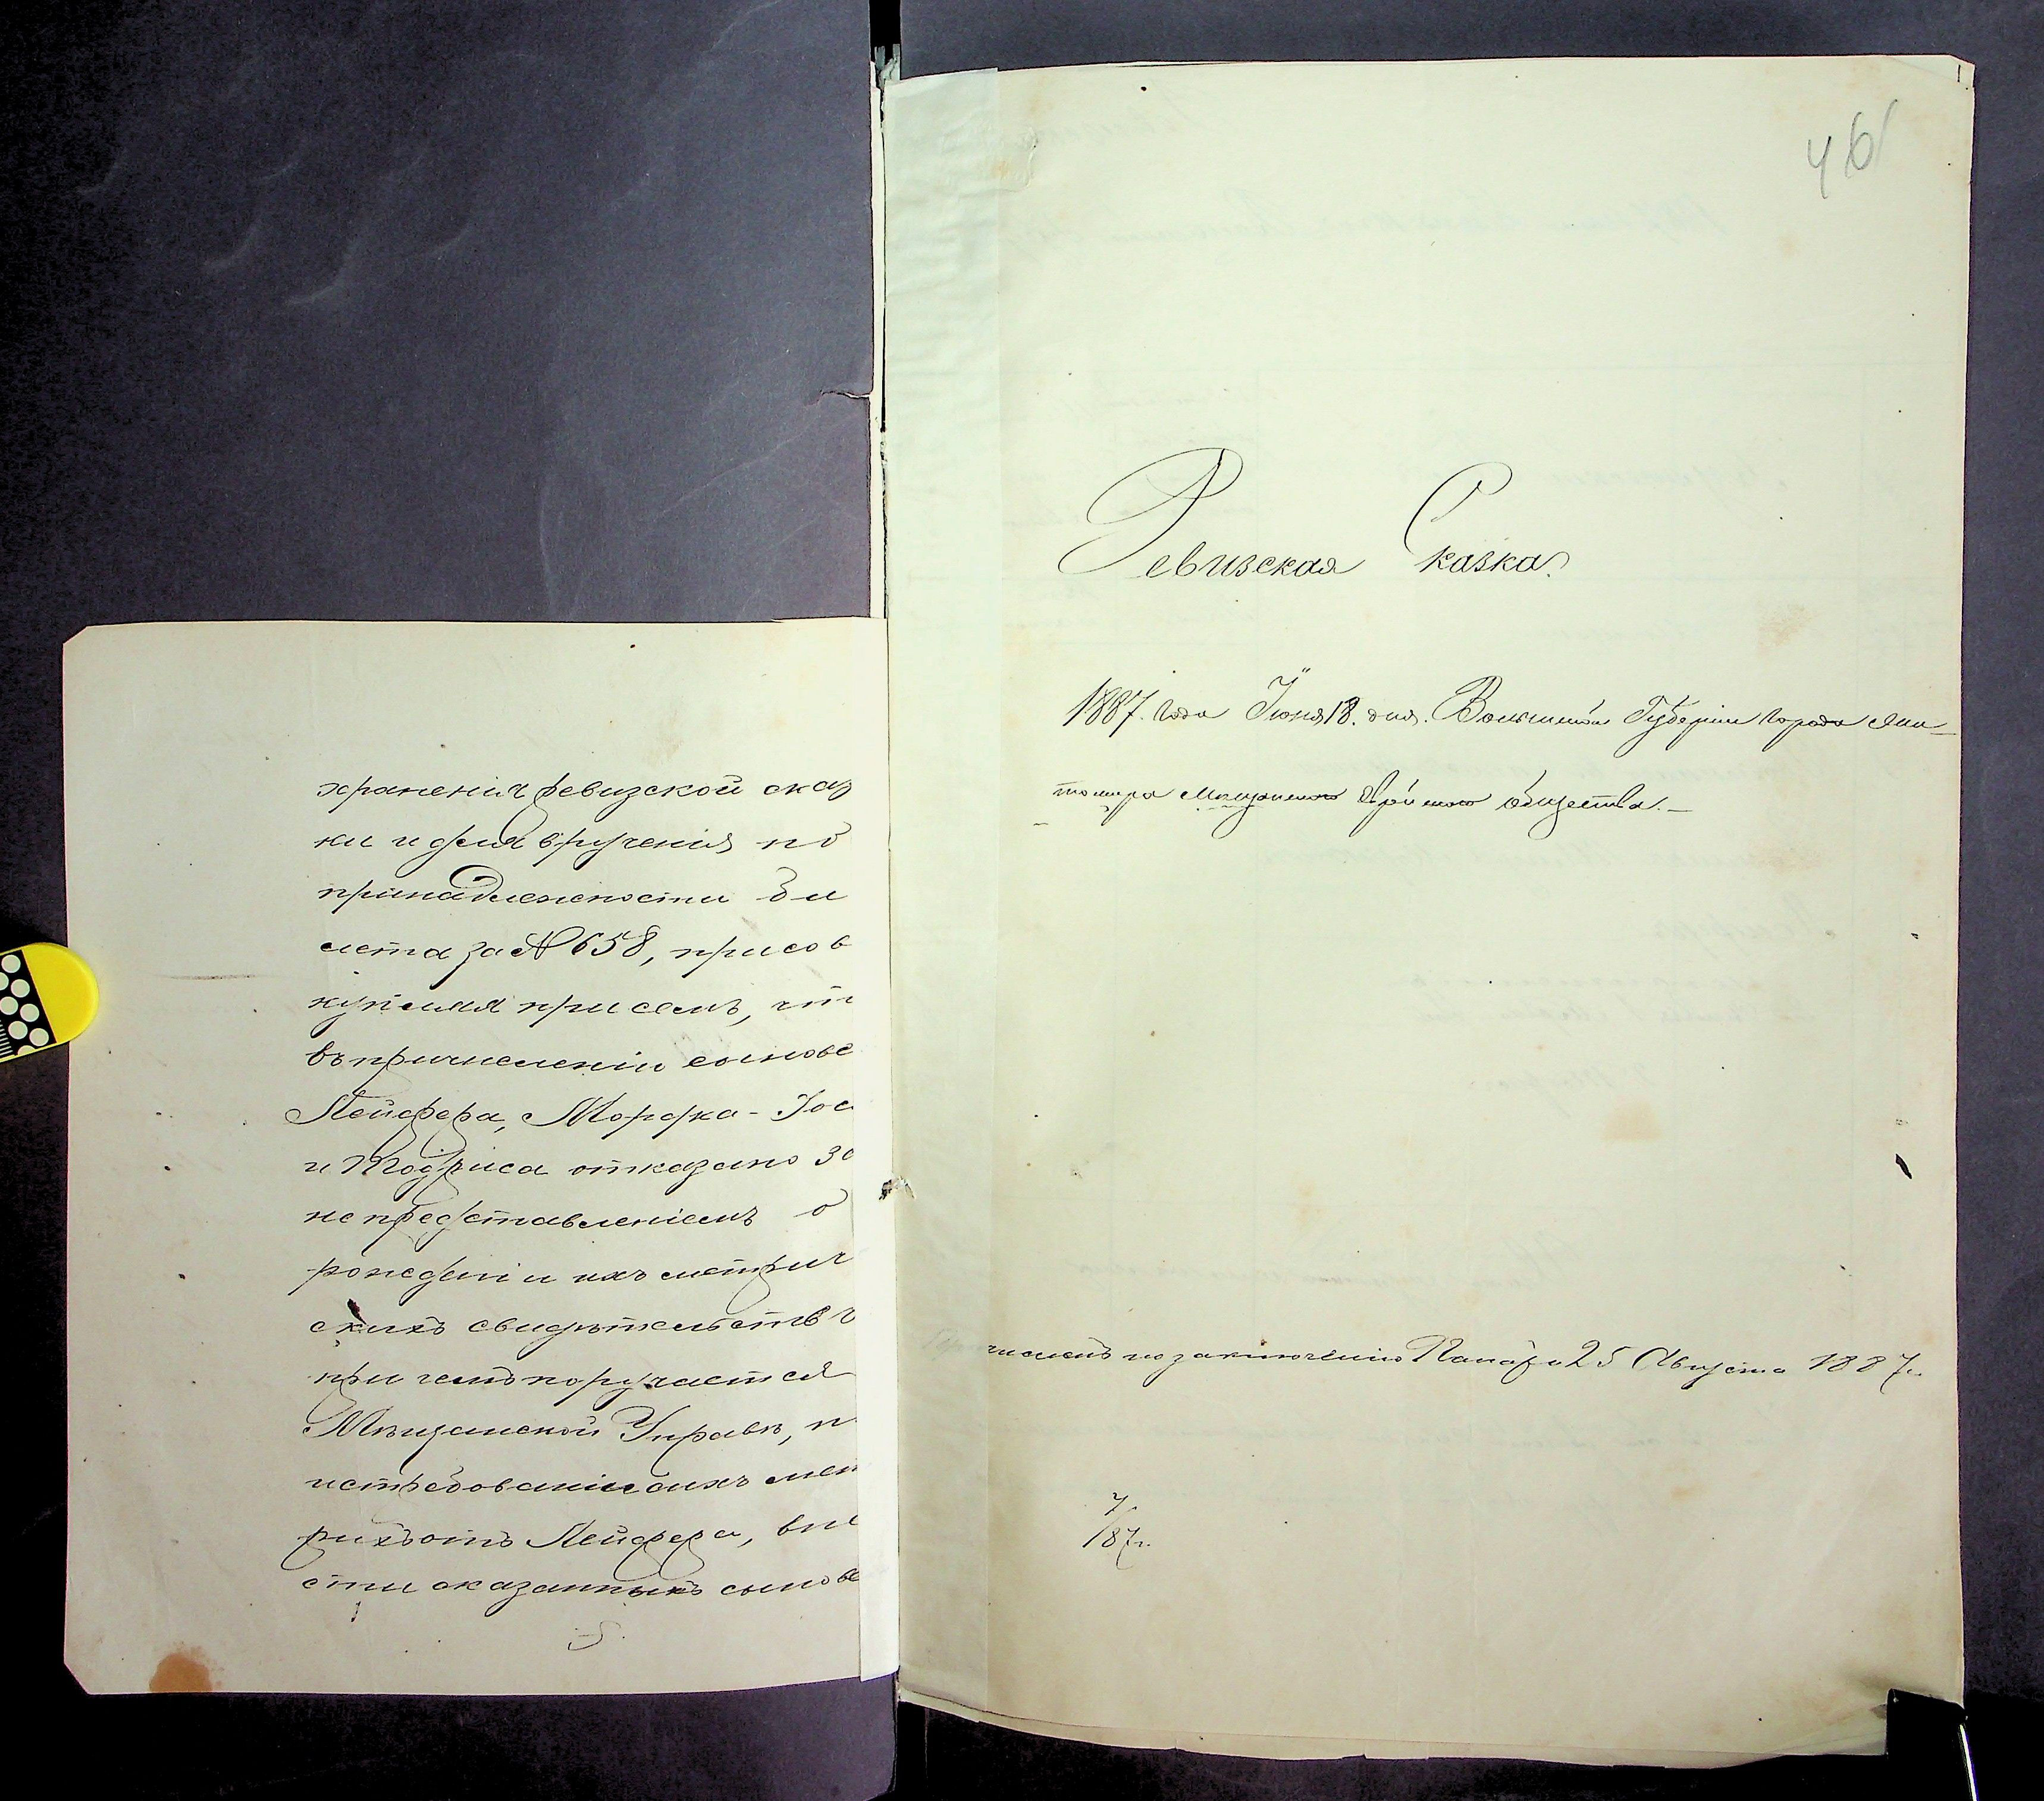 храненія ревизской сказ
ки и для врученія по
принадлежности би
лета за № 658, присов
купляя при семъ, что
въ причисленіи сынове
Лейдера, Мордка-Іос
и Кодриса отказано за
не представленіемъ о
рожденіи ихъ метрич
скихъ свидѣтельствъ
при чемъ поручается
Мѣщанской Управѣ, п
истребованіи онихъ мет
рикъ отъ Лейдера, вне
сти сказанныхъ сынове
46
Ревизская Сказка
1887. года Іюня 18. дня. Волынской Губерніи города Жи-
томира Мѣщанскаго Еврейскаго общества.-
численъ по заключенію Палаты 25 Августа 1887 г.
7/87 г.